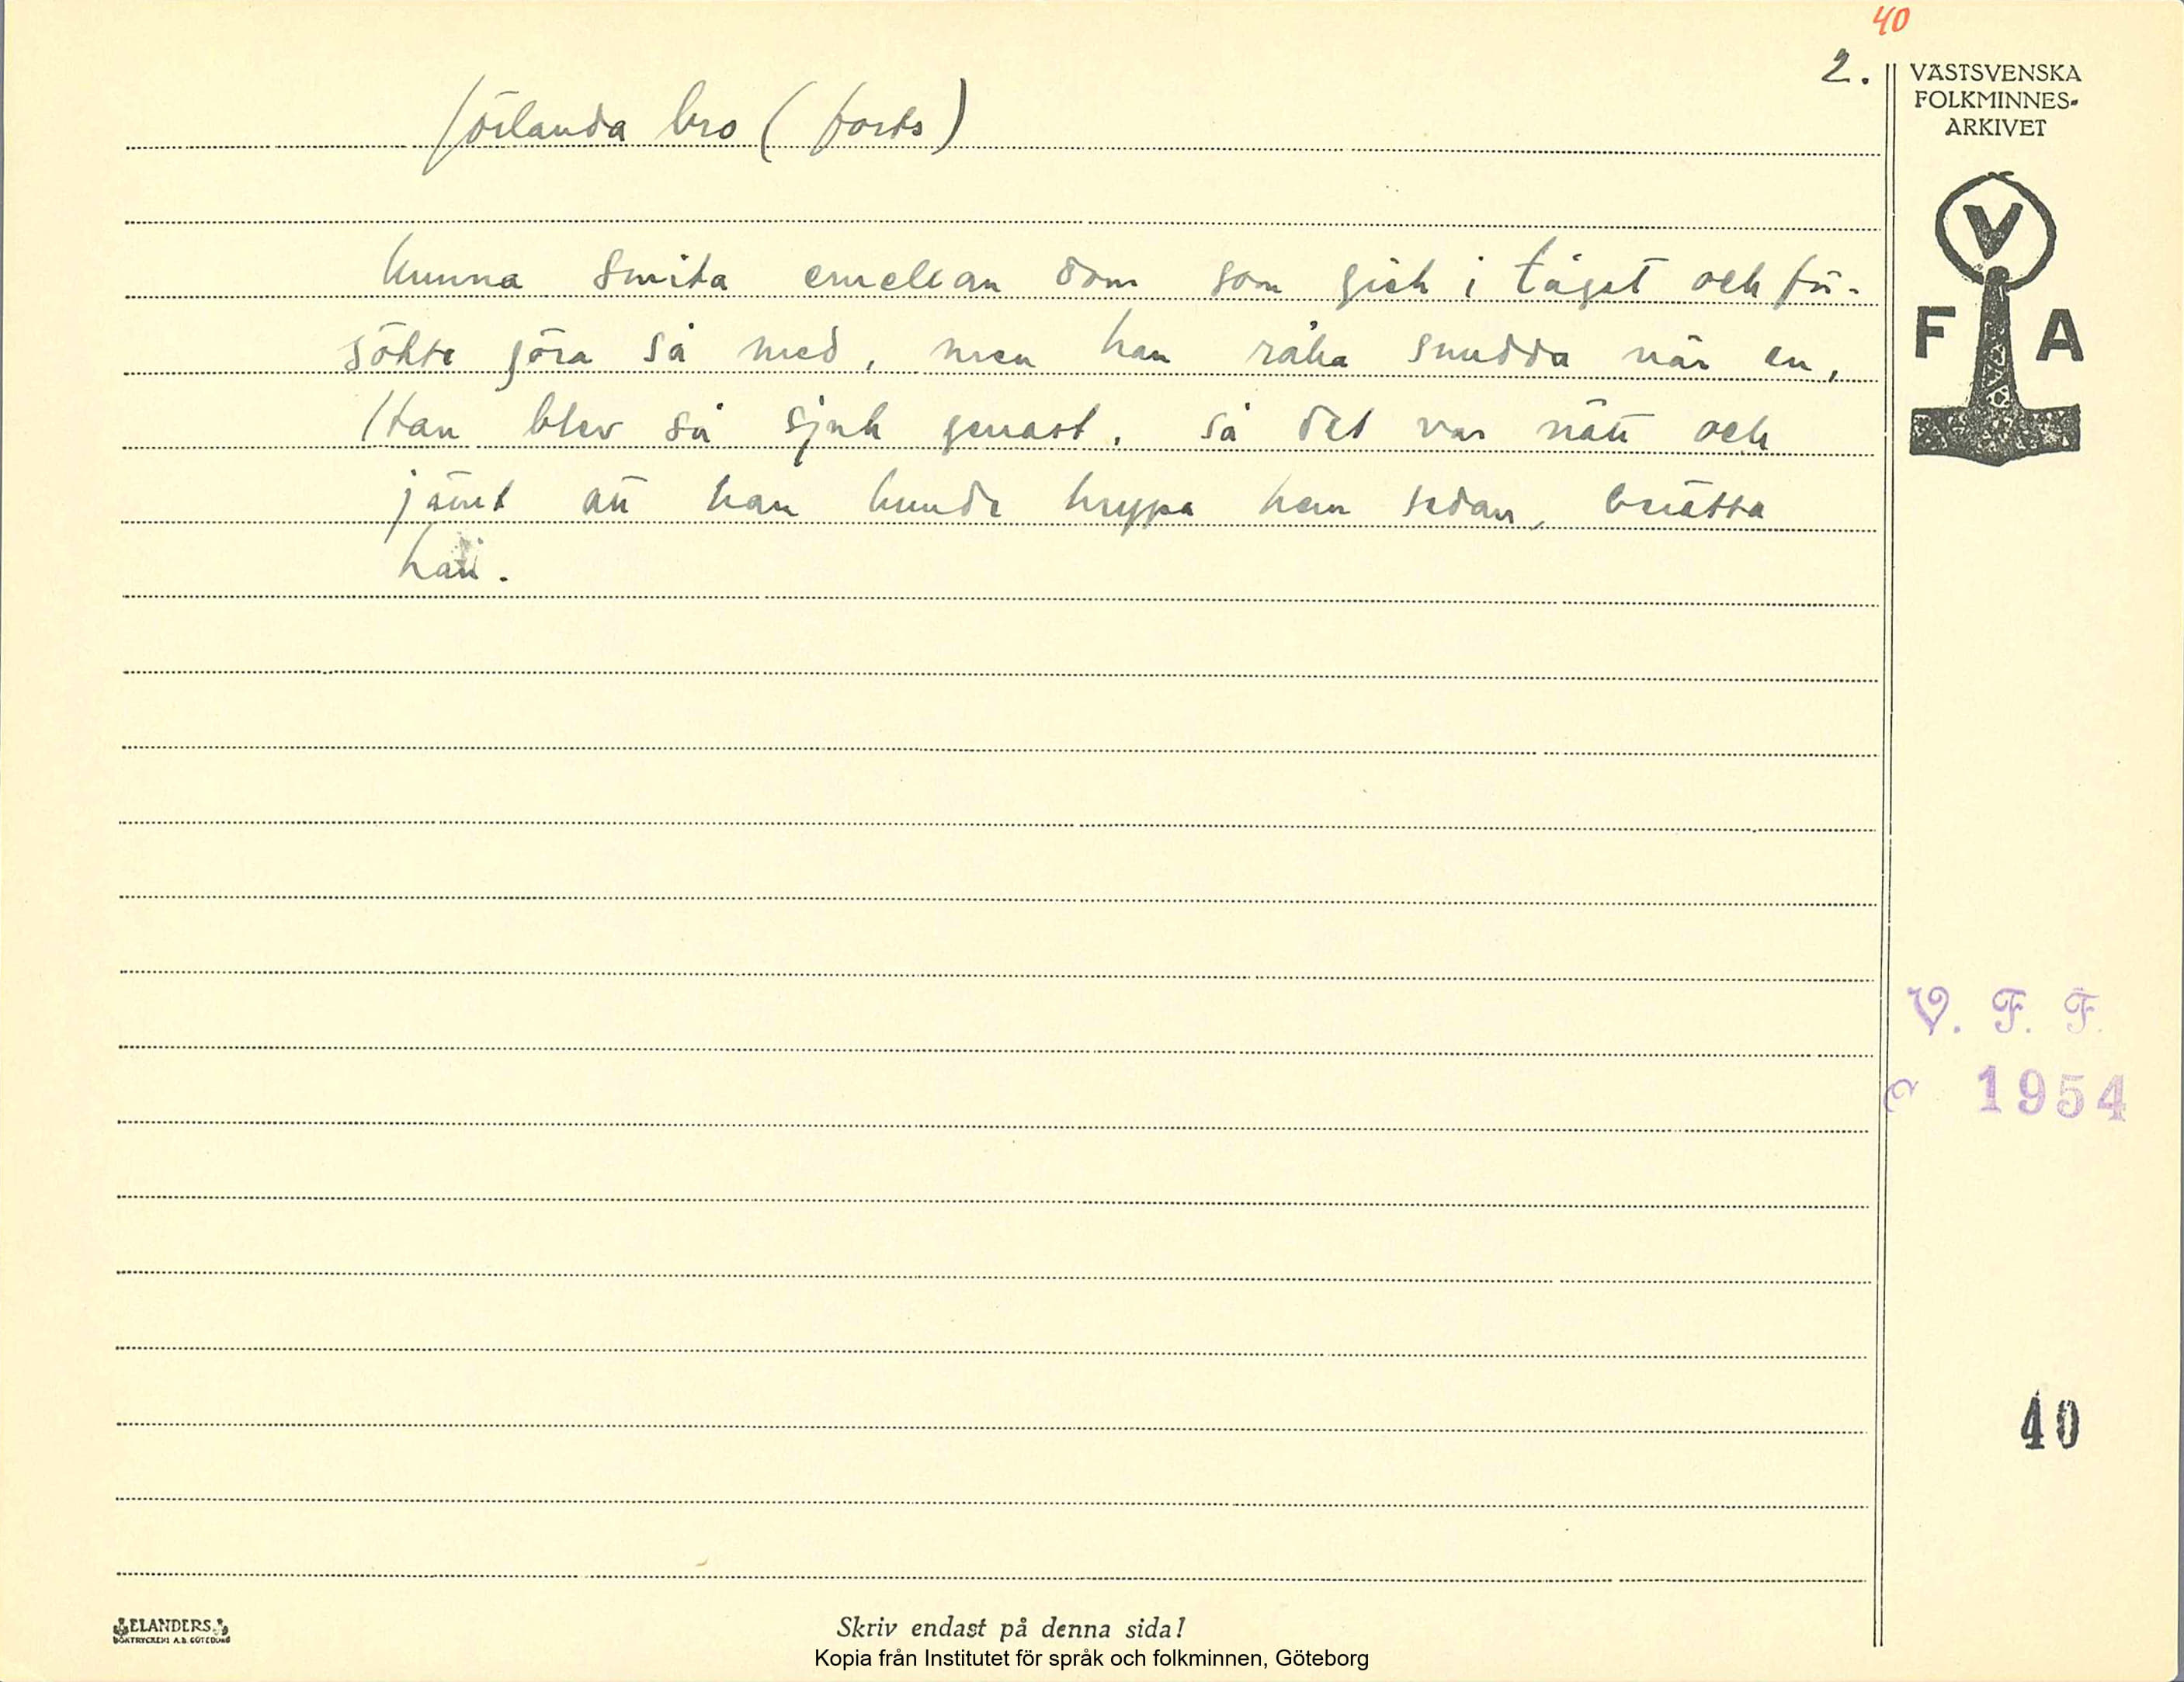 40
2.
VÄSTSVENSKA
FOLKMINNES-
ARKIVET
Jörlanda bro (forts)
V
F A
kunna smita emellan dom som gick i tåget och för-
sökte göra så med, men han råka snudda när en,
Han blev så sjuk genast, så det var nätt och
jämt att han kunde krypa hem sedan, brätta
han.
V. F. F.
1954
40
ELANDERS
BOKTRYCKERI A.B. GÖTEBORG
Skriv endast på denna sida!
Kopia från Institutet för språk och folkminnen, Göteborg